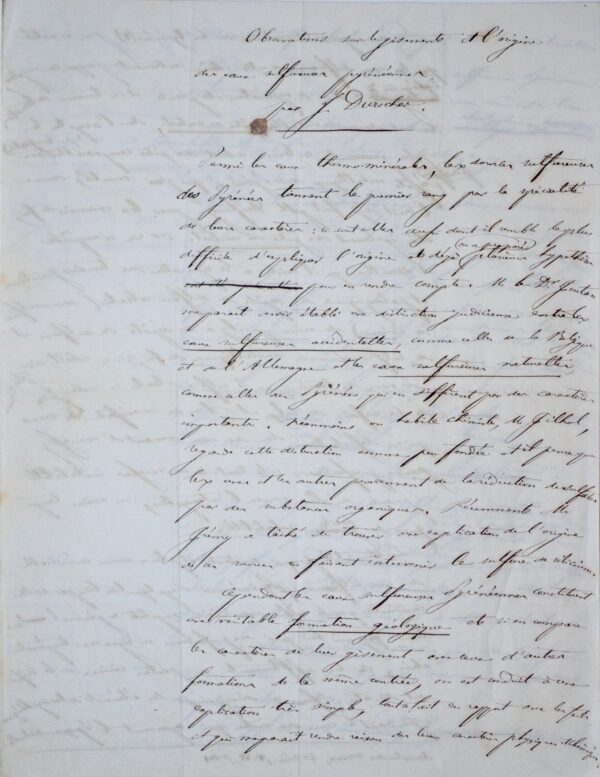 Observations sur le gisement et l'origine
des eaux sulfureuses pyrénéennes
par J. Durocher.
Parmi les eaux thermominérales, les sources sulfureuses
des Pyrénées tiennent le premier rang par la spécialité
de leurs caractères : ce sont elles aussi dont il semble le plus
difficile d'expliquer l'origine et déjà on a proposé plusieurs hypothèses
pour en rendre compte. M. le Dr Fontan
me parait avoir établi une distinction judicieuse entre les
eaux sulfureuses accidentelles, comme celles de la Belgique
et de l'Allemagne et les eaux sulfureuses naturelles
comme celles des Pyrénées qui en diffèrent par des caractères
importants. Néanmoins un habile chimiste, M. Filhol,
regarde cette distinction comme peu fondée et il pense que
les unes et les autres proviennent de la réduction de sulfates
par des substances organiques. Récemment M.
Frémy a tâché de trouver une explication de l'origine
de ces sources en faisant intervenir le sulfure de silicium.
Cependant les eaux sulfureuses Pyrénéennes constituent
une véritable formation géologique et si on compare
les caractères de leur gisement avec ceux d'autres
formations de la même contrée, on est conduit à une
explication très simple, tout à fait en rapport avec les faits
et qui me parait rendre raison de leurs caractères physiques et chimiques.